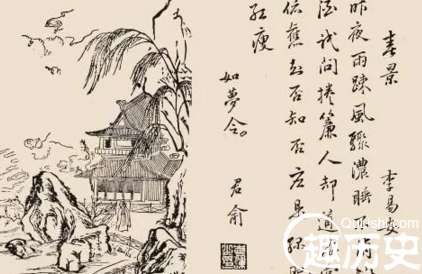 春景 李易
昨夜雨疎風驟濃睡不
酒試問捲簾人却道海棠
依舊知否知否應是綠
紅瘦
如夢令。
君俞
Qulishi.com
趣历史